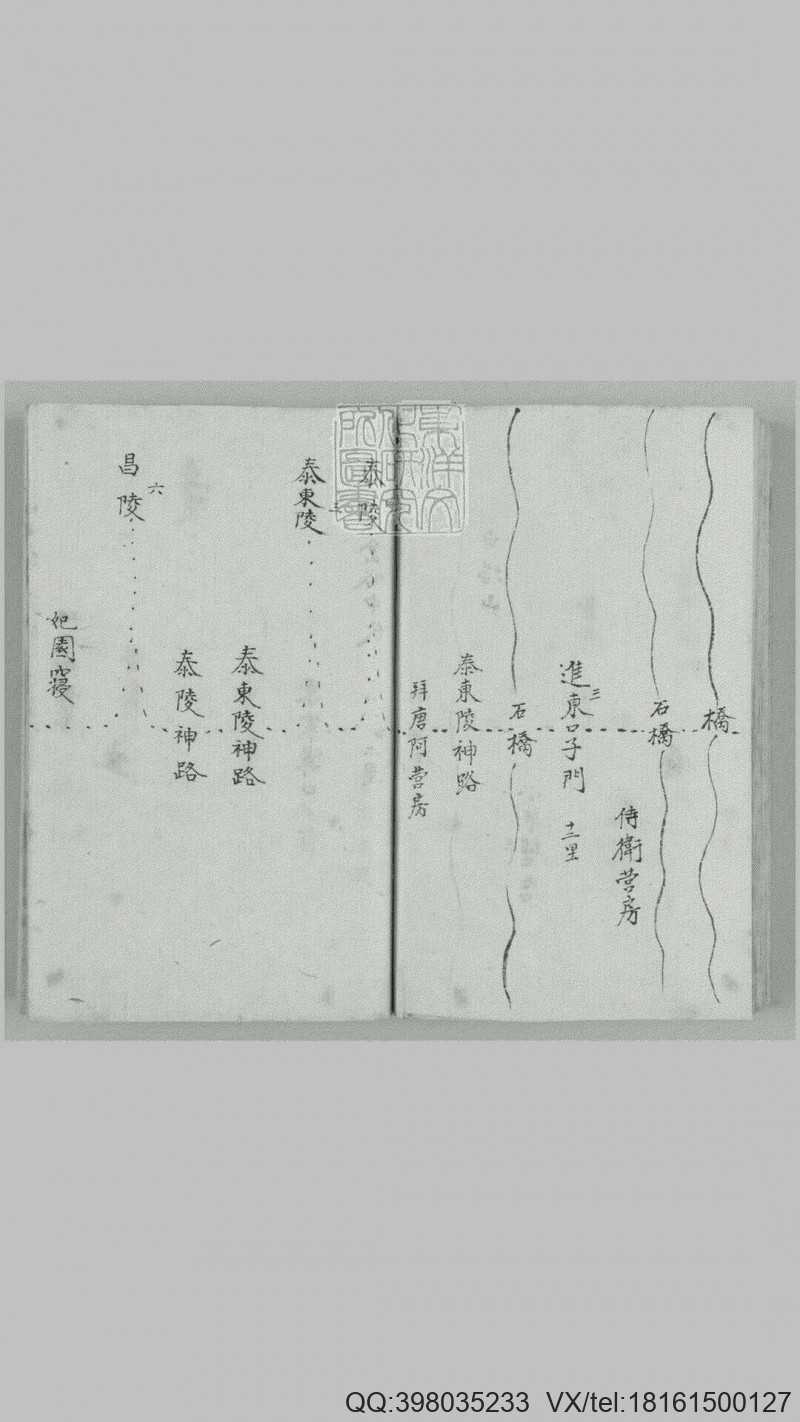 橋
石橋
侍衛营房
進東口子門
三
十二里
石橋
泰東陵神路
拜唐阿营房
泰陵
泰東陵
泰東陵神路
泰陵神路
六
昌陵
妃園寝
QQ:398035233 VX/tel:18161500127